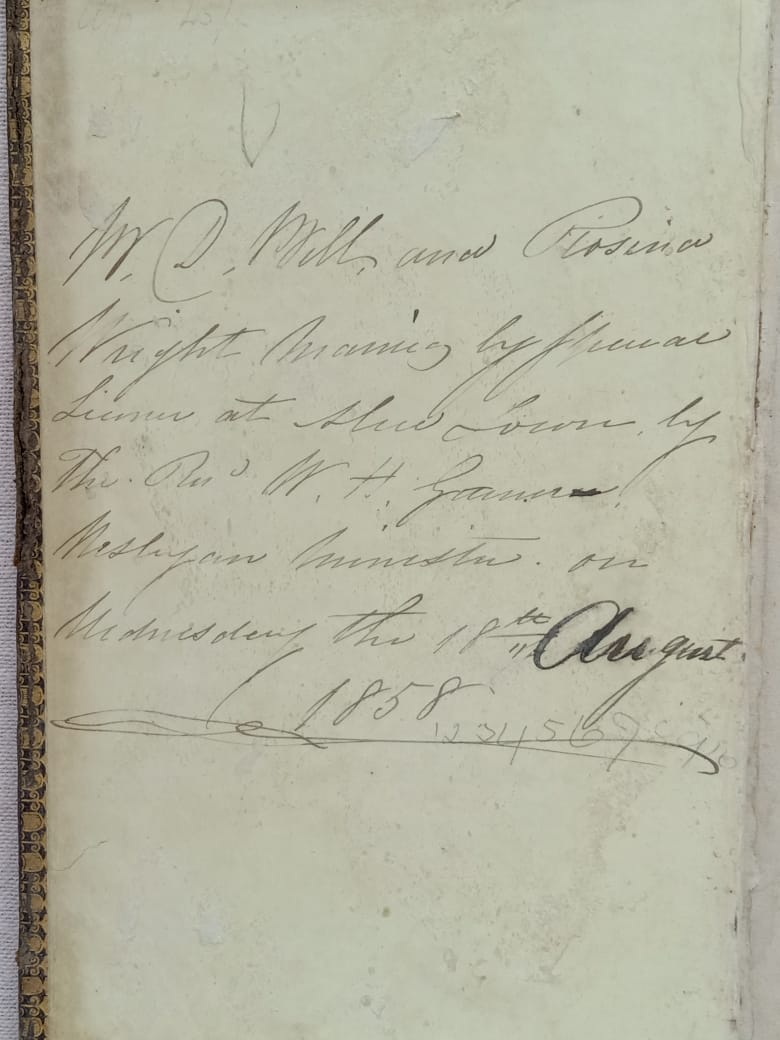 W. D. Will, and Rosina
Wright Married by Special
License at Alice Town, by
The Revd W. H.
Wesleyan Minister. on
Wednesday the 18th August
1858
1234567